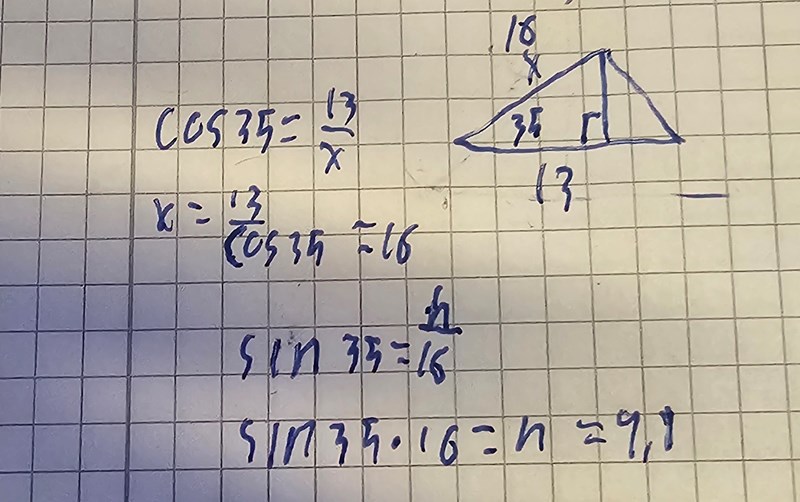 16
x
35
13
cos35 = 13/x
x = 13/cos35 = 16
sin 35 = h/16
sin 35 · 16 = h = 9,1